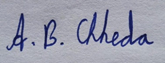 A. B. Chheda